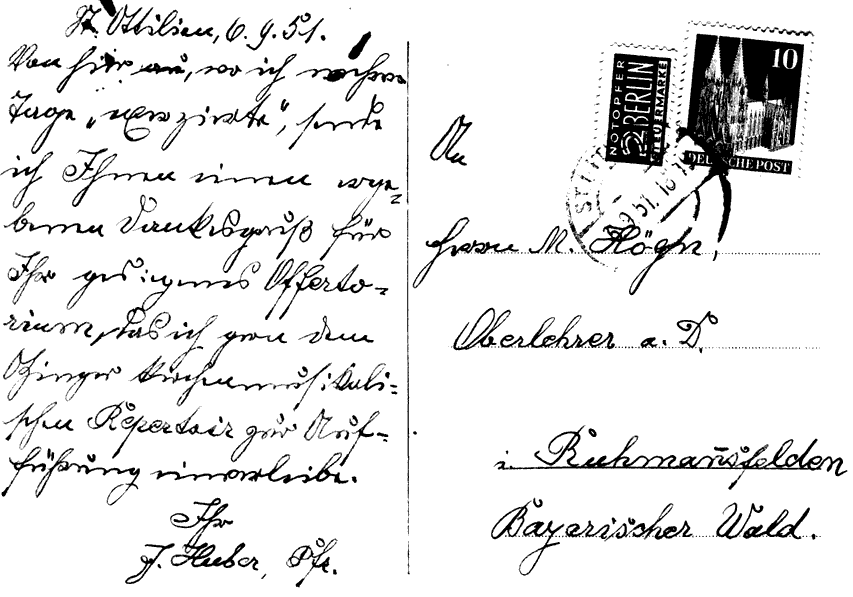 St. Ottilien, 6.9.51.
Von hier aus, wo ich mehrere
Tage „exerzierte", sende
ich Ihnen einen erge-
benen Dankesgruß für
Ihr gediegenes Offerto-
rium, das ich gern dem
Otzinger kirchenmusikali-
schen Repertoir zur Auf-
führung einverleibe.
Ihr
J. Huber, Pfr.
NOTOPFER
2 BERLIN
STEUERMARKE
10
DEUTSCHE POST
An
Herrn M. Högn,
Oberlehrer a. D.
i. Ruhmannsfelden
Bayerischer Wald.